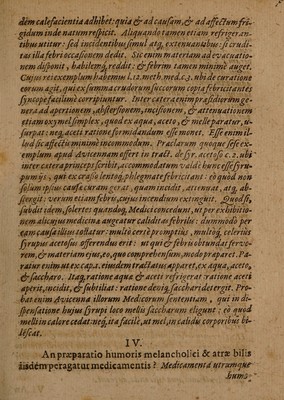 dēm calefacientia adhibet: quia & ad causam, & ad affectum fri-
gidum inde natum respicit. Aliquando tamen etiam refrigeran-
tibus utitur: sed incidentibus simul atq; extenuantibus: si crudi-
tas illa febri occasionem dedit. Sic enim materiam ad evacuatio-
nem disponit, habilemq́; reddit: & febrim tamen minimè auget.
Cujus rei exemplum habemus l. 12. meth. med. c. 3. ubi de curatione
eorum agit, qui ex summa crudorum succorum copia febricitantes
syncope facilimè corripiuntur. Inter cætera enim præsidiorum ge-
nera ad apertionem, abstersionem, incisionem, & attenuationem
etiam oxymel simplex, quod ex aqua, aceto, & melle paratur, u-
surpat: neq; aceti ratione formidandum esse monet. Esse enim il-
lud his affectibus minimè incommodum. Præclarum quoque ejus
exemplum apud Avicennam offert in tract. de syr. acetoso c. 2. ubi
inter cætera præcipuè scribit, accommodatum valdè hunc esse syru-
pum ijs, qui ex crasso lentoq; phlegmate febricitant: eò quod non
solùm ipsius causæ curam gerat, quam incidit, attenuat, atq; ab-
stergit: verùm etiam febri, cujus incendium extinguit. Quod si,
subdit idem, solertes quandoq; Medici concedunt, ut per exhibitio-
nem alicujus medicinæ augeatur caliditas febrilis: dummodo per
eam causa illius tollatur: multò certè promptiùs, multoq́; celeriùs
syrupus acetosus offerendus erit: ut qui & febri obtundat fervo-
rem, & materiam ejus, eo, quo comprehensum, modo præparet. Pa-
ratur enim ut ex cap. ejusdem tractatus apparet, ex aqua, aceto,
& saccharo. Itaq; ratione aqua & aceti refrigerat: ratione aceti
aperit, incidit, & subtiliat: ratione deniq; sacchari detergit. Pro-
bat enim Avicenna illorum Medicorum sententiam, qui in di-
spensatione hujus syrupi loco mellis saccharum eligunt: eò quod
mel lin calore cedat: neq; ita facilè, ut mel, in calidis corporibus bi-
lescat.
IV.
An præparatio humoris melancholici & atræ bilis
iisdem peragatur medicamentis? Medicamenta utrumque
humo-